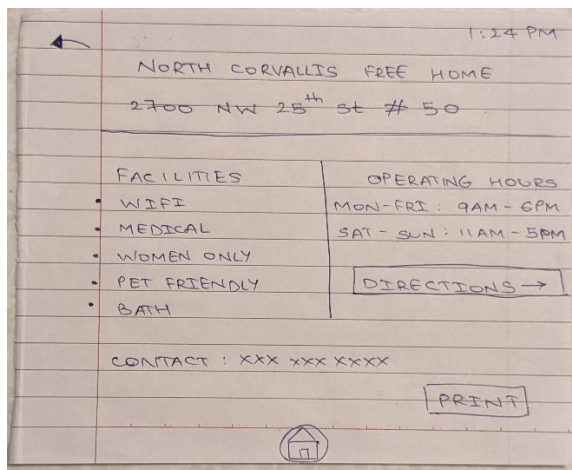 1:24 PM
NORTH CORVALLIS FREE HOME
2700 NW 25th St # 50
FACILITIES
• WIFI
• MEDICAL
• WOMEN ONLY
• PET FRIENDLY
• BATH
OPERATING HOURS
MON-FRI : 9AM - 6PM
SAT - SUN : 11AM - 5PM
DIRECTIONS →
CONTACT : XXX XXX XXXX
PRINT